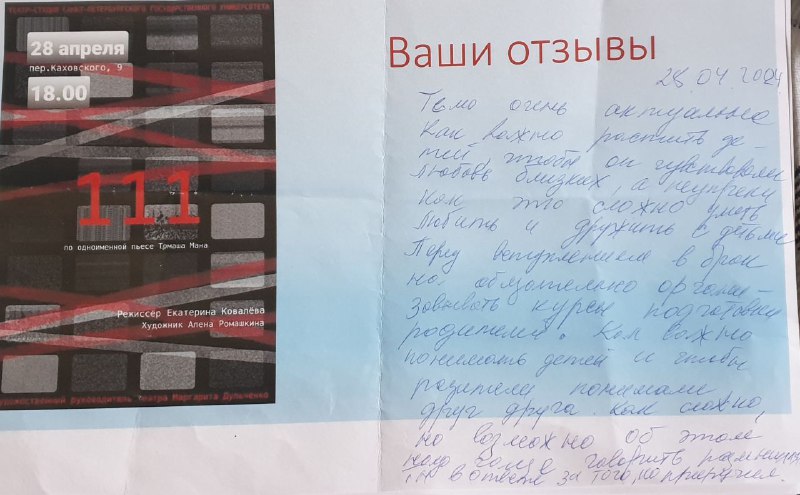 ТЕАТР-СТУДИЯ САНКТ-ПЕТЕРБУРГСКОГО ГОСУДАРСТВЕННОГО УНИВЕРСИТЕТА
28 апреля
пер.Каховского, 9
18.00
111
по одноименной пьесе Трмаша Мана
Режиссёр Екатерина Ковалёва
Художник Алена Ромашкина
художественный руководитель театра Маргарита Дульченко
Ваши отзывы
28.04 2024
Тема очень актуальна
Как важно растить де-
тей чтобы они чувствовали
любовь близких, а не упреки
Как это сложно уметь
любить и дружить с детьми
Перед вступлением в брак
на обязательно органи-
зовывать курсы подготовки
родителей. Как важно
понимать детей и чтобы
родители понимали
друг друга. Как сложно,
но возможно об этом
надо говорить
в ответе за того, но приручил.